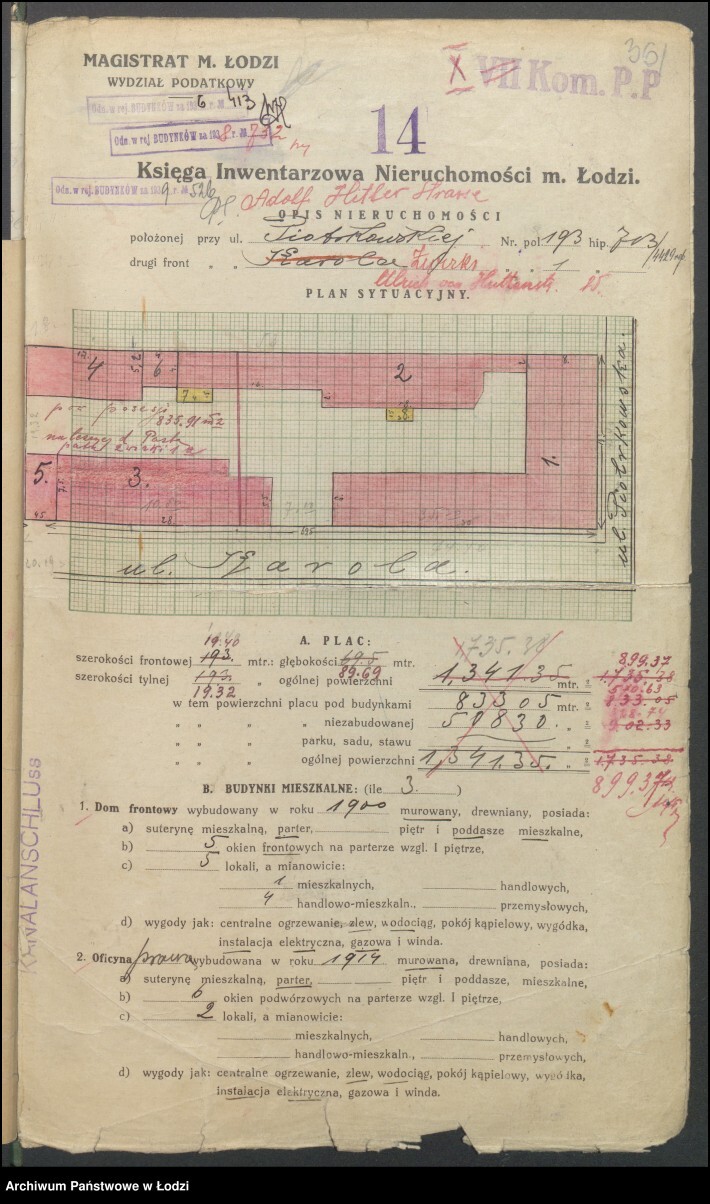 MAGISTRAT M. ŁODZI
WYDZIAŁ PODATKOWY
351
X VII Kom. P.P
Odn. w rej. BUDYNKÓW na 193 6 r. № 413
Odn. w rej. BUDYNKÓW na 193 8 r. № 732
14
Księga Inwentarzowa Nieruchomości m. Łodzi.
Odn. w rej. BUDYNKÓW na 193 9 r. № 526
Adolf Hitler Strasse
OPIS NIERUCHOMOŚCI
położonej przy ul. Piotrkowskiej Nr. pol. 193 hip. 703/4429
drugi front „ „ Karola Żwirki „ „ 1 „
Ulrich von Huttenstr. 85.
PLAN SYTUACYJNY.
4
6
2
7
8
1.
5.
3.
pow posesji
835.91 m2
ul. Piotrkowska.
ul. Karola.
A. PLAC:
735.38
19.40
szerokości frontowej 193. mtr.: głębokości 69.5 mtr.
899.37
szerokości tylnej 193. „ ogólnej powierzchni 1,341.35 mtr. ² 1.735.38
19.32
89.69
w tem powierzchni placu pod budynkami 833 05 mtr. ² 833.05
„ „ „ „ niezabudowanej 508 30. „ ² 902.33
„ „ „ parku, sadu, stawu „ ²
„ „ „ ogólnej powierzchni 1,341.35. „ ² 1.735.38
899.37
B. BUDYNKI MIESZKALNE: (ile 3. )
1. Dom frontowy wybudowany w roku 1900 murowany, drewniany, posiada:
a) suterynę mieszkalną, parter, piętr i poddasze mieszkalne,
b) 5 okien frontowych na parterze wzgl. I piętrze,
c) 5 lokali, a mianowicie:
1 mieszkalnych, handlowych,
4 handlowo-mieszkaln., przemysłowych,
d) wygody jak: centralne ogrzewanie, zlew, wodociąg, pokój kąpielowy, wygódka,
instalacja elektryczna, gazowa i winda.
KANALANSCHLUSS
2. Oficyna prawa wybudowana w roku 1914 murowana, drewniana, posiada:
a) suterynę mieszkalną, parter, piętr i poddasze, mieszkalne,
b) 6 okien podwórzowych na parterze wzgl. I piętrze,
c) 2 lokali, a mianowicie:
mieszkalnych, handlowych,
handlowo-mieszkaln., przemysłowych,
d) wygody jak: centralne ogrzewanie, zlew, wodociąg, pokój kąpielowy, wygódka,
instalacja elektryczna, gazowa i winda.
Archiwum Państwowe w Łodzi